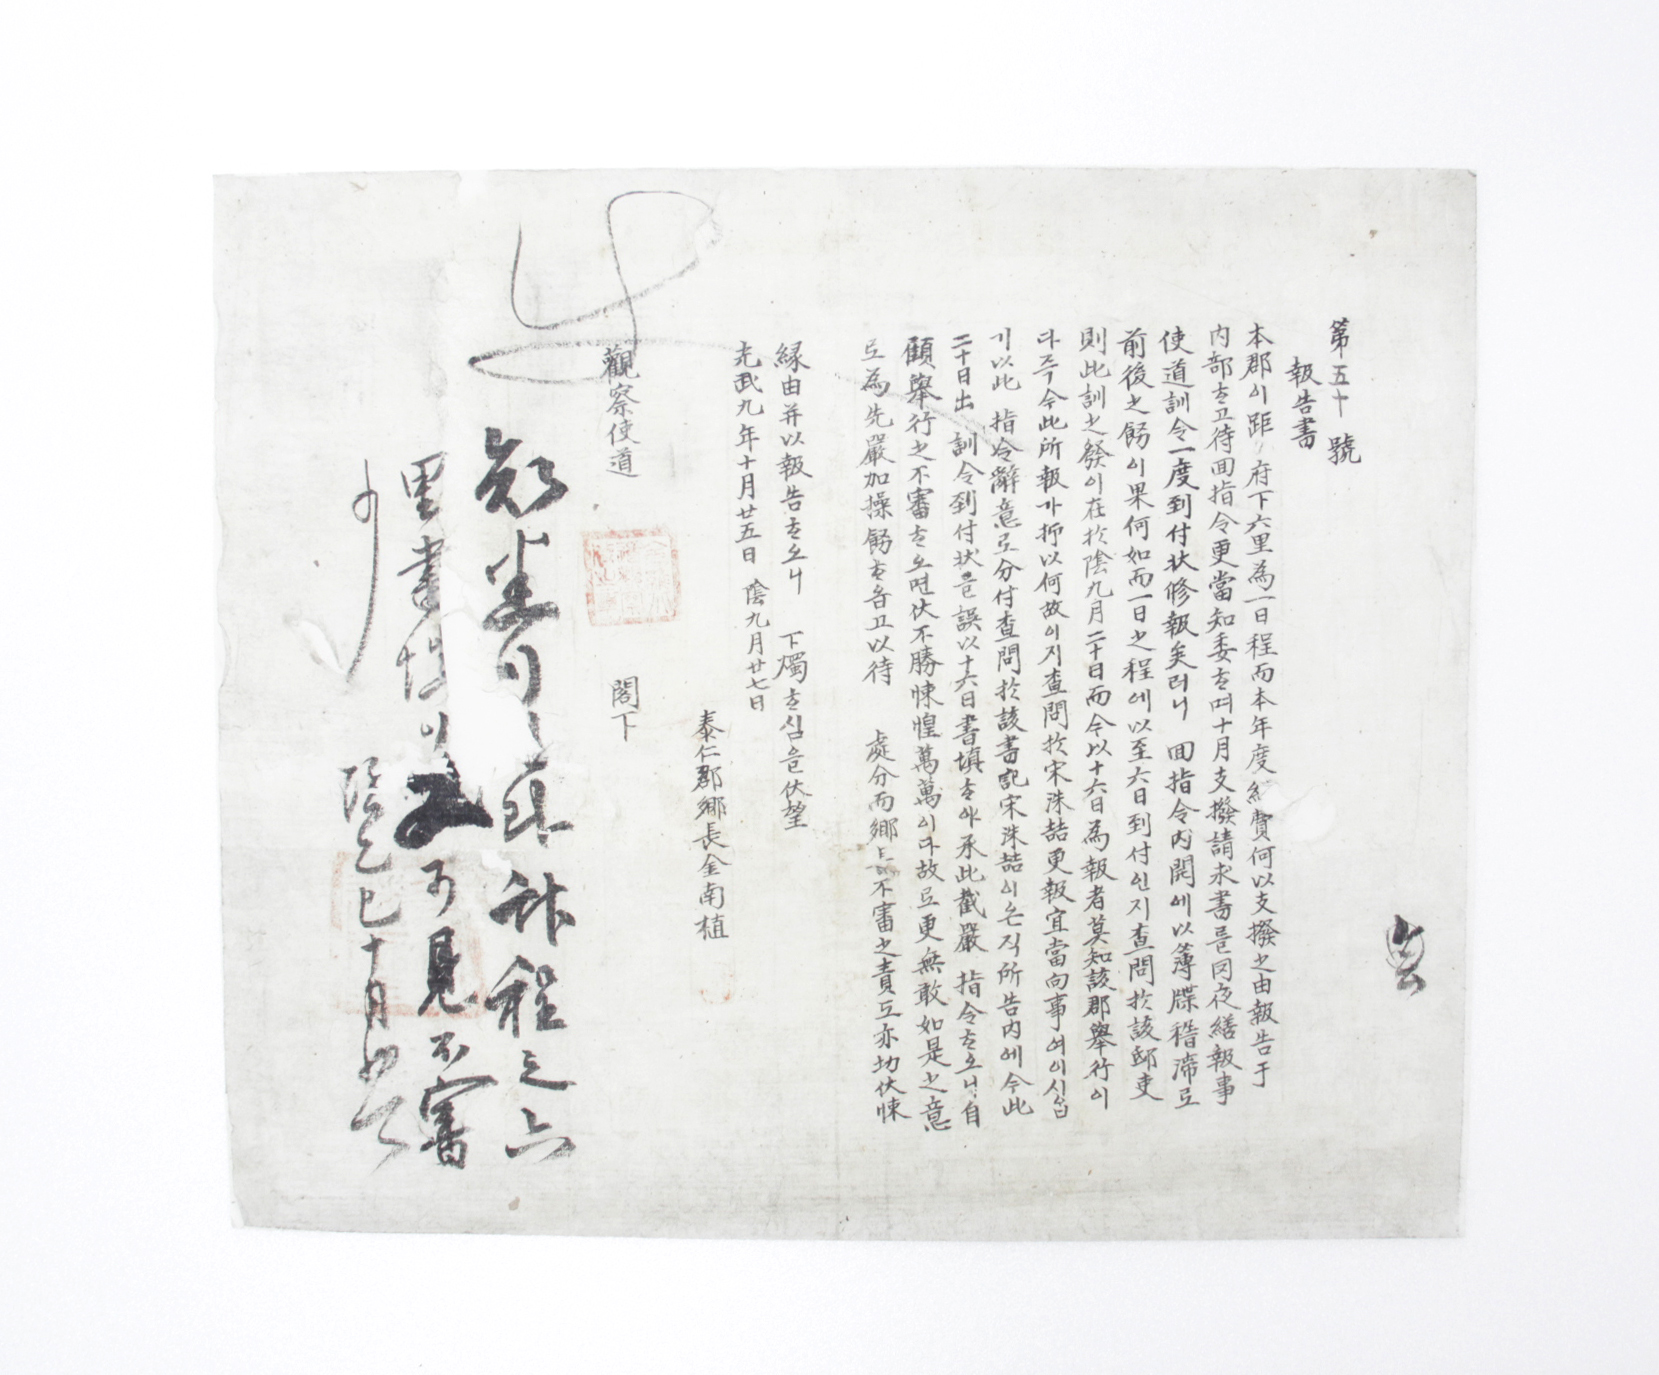 第五十號
報告書
本郡이距府下六里為一日程而本年度經費何以支撥之由報告于
內部하고待回指令更當知委하며十月支撥請求書를罔夜繕報事
使道訓令一度到付狀修報矣러니 回指令內開에以簿牒稽滯로
前後之飭이果何如而一日之程에以至六日到付인지查問於該邸吏
則此訓之發이在於陰九月二十日而今以十六日為報者莫知該郡舉行이
다즉今此所報가抑以何故이지查問於宋洙喆更報宜當向事여이십
기以此 指令辭意로分付查問於該書記宋洙喆이온직所告內에今此
二十日出 訓令到付狀을誤以十六日書塡하야承此截嚴 指令하오니自
顧舉行之不審하오면伏不勝悚惶萬萬이다故로更無敢如是之意
로為先嚴加操飭하읍고以待 處分而鄉長不審之責도亦切伏悚
緣由并以報告하오니 下燭하심을伏望
光武九年十月廿五日 陰九月廿七日
泰仁郡鄉長金南植
觀察使道 閣下
程之六
里書 可見不審
乙巳十月